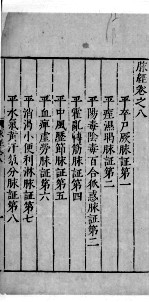 脉經卷之八
平卒尸厥脉証第一
平痓濕暍脉証第二
平陽毒陰毒百合狐惑脉証第三
平霍亂轉筋脉証第四
平中風歷節脉証第五
平血痹虛勞脉証第六
平消渴小便利淋脉証第七
平水氣黃汗氣分脉証第八